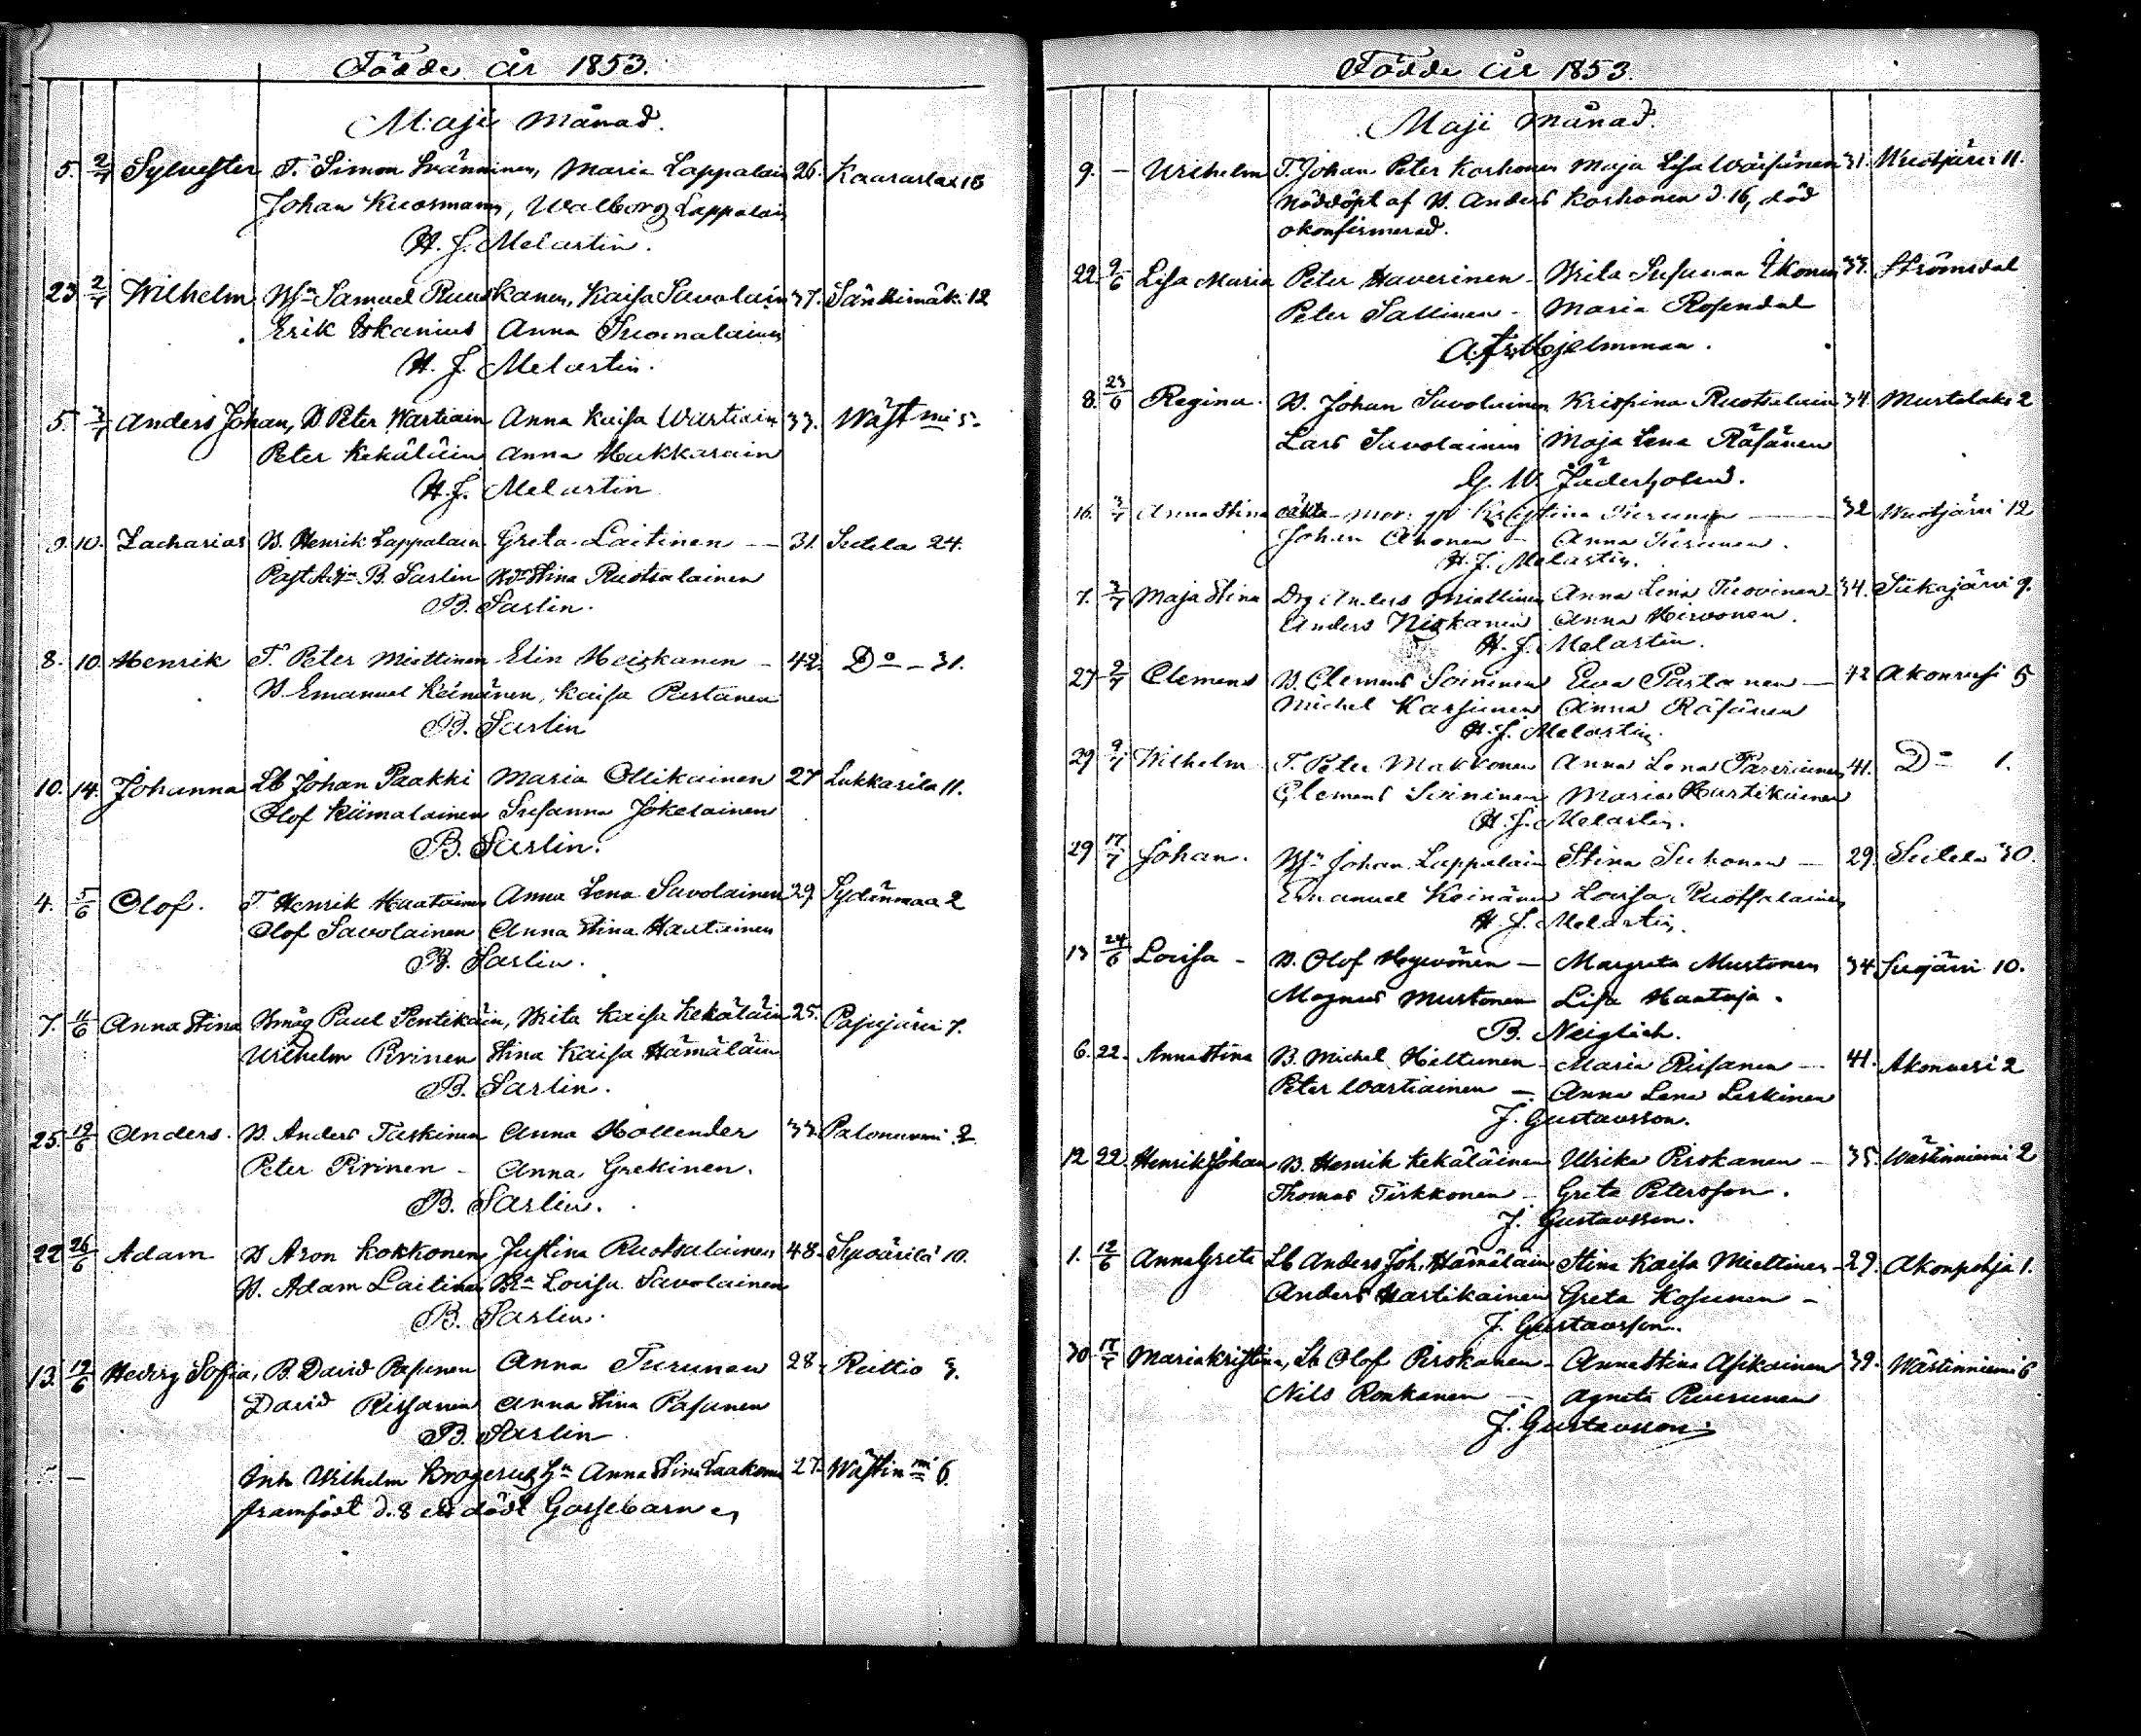 Födde år 1853.
Maji månad.
5. 2/7 Sylvester T. Simon Svänninen, Maria Lappalain 26. Kaavarlax 16
Johan Kuosmanen, Walborg Lappalain
H. J. Melartin.
23 2/7 Wilhelm Samuel Ruuskanen, Kaisa Savolain 37. Säntkimäk. 12
Erik Iskanius Anna Suomalainen
H. J. Melartin.
5. 3/7 Anders Johan, B. Peter Wartiain Anna Kaisa Wartiain 33. Wäst mi 5.
Peter Kekäläin Anna Hukkarain
H. J. Melartin
9. 10. Zacharias B. Henrik Lappalain Greta Laitinen 31. Sutela 24.
Past. Adj. B. Sarlin Stina Ruotsalainen
B. Sarlin.
8. 10. Henrik T. Peter Miettinen Elin Heiskanen 42. Do 31.
B. Emanuel Keinänen, Kaisa Partanen
B. Sarlin
10. 14. Johanna Lb Johan Paakki Maria Ollikainen 27 Lukkarila 11.
Olof Riimalainen Susanna Jokelainen
B. Sarlin.
4. 5/6 Olof. T. Henrik Haatainen Anna Lena Savolainen 29. Sydänmaa 2
Olof Savolainen Anna Stina Haatainen
B. Sarlin.
7. 11/6 Anna Stina Bmåg Paul Pentikäin, Brita Kaisa Kekäläin 25. Pajujärvi 7.
Wilhelm Pirinen Stina Kaisa Hämäläin
B. Sarlin.
25. 12/6 Anders. B. Anders Taskinen Anna Hollender 33. Palonurmi 2.
Peter Pirinen Anna Grekinen.
B. Sarlin.
22 26/6 Adam B Aron Kokkonen Justina Ruotsalainen 48. Syvärilä 10.
B. Adam Laitinen Lovisa Savolainen
B. Sarlin.
13. 12/6 Hedvig Sofia, B. David Pasanen Anna Turunen 28. Reittio 3.
David Rissanen Anna Stina Pasanen
B. Sarlin
Inh Wilhelm Krogerus Anna Stina Laakonen 27. Wästin mi 6.
framfödt d. 8 ett dödt Gossebarn
Födde år 1853.
Maji månad.
9. – Wilhelm T. Johan Peter Korhonen Maja Lisa Wäisänen 31. Wuotjärvi 11.
Nöddöpt af B. Anders Korhonen d. 16, död
okonfirmerad.
22. 9/6 Lisa Maria Peter Haverinen Brita Susanna Ikonen 33. Strömsdal
Peter Sallinen Maria Rosendal
Hjelmman.
8. 23/6 Regina. B. Johan Savolainen Krispina Ruotsalain 34 Murtolaks 2
Lars Savolainen Maja Lena Räsänen
G. W. Zåderholm.
16. 3/7 Anna Stina oäkta mor: Kristina Turunen 32 Wuotjärvi 12
Johan Anonen Anna Turunen.
H. J. Melartin.
7. 3/7 Maja Stina Drg Anders Miettinen Anna Lena Tuovinen 34. Siikajärvi 9.
Anders Niskanen Anna Hirvonen.
H. J. Melartin.
27 2/7 Clemens B. Clemens Soininen Eva Partanen 42 Akonvesi 5
Michel Karjunen Anna Räsänen
H. J. Melartin.
29 9/7 Wilhelm T. Peter Makkonen Anna Lena Parviainen 41. Do 1.
Clemens Soininen Maria Hartikainen
H. J. Melartin.
29 17/7 Johan. Johan Lappalain Stina Suhonen 29. Sutela 30.
Emanuel Keinänen Lovisa Ruotsalainen
H. J. Melartin.
13 24/6 Lovisa B. Olof Heyvönen Margreta Mustonen 34 Suojärvi 10.
Magnus Mustonen Lisa Haataja.
B. Neiglick.
6. 22. Anna Stina B. Michel Hiltunen Maria Riisanen 41. Akonvesi 2
Peter Wartiainen Anna Lena Leskinen
J. Gustavsson.
12 22. Henrik Johan B. Henrik Kekäläinen Ulrika Pirskanen 35. Wästinniemi 2
Thomas Tirkkonen Greta Petersson.
J. Gustavsson.
1. 12/6 Anna Greta Lb Anders Joh. Hämäläin Stina Kaisa Miettinen 29. Akonpohja 1.
Anders Hartikainen Greta Kosunen
J. Gustavsson.
30 17/7 Maria Kristina, Lb Olof Pirskanen Anna Stina Asikainen 39. Wästinniemi 6
Nils Ronkanen Agneta Puurunen
J. Gustavsson